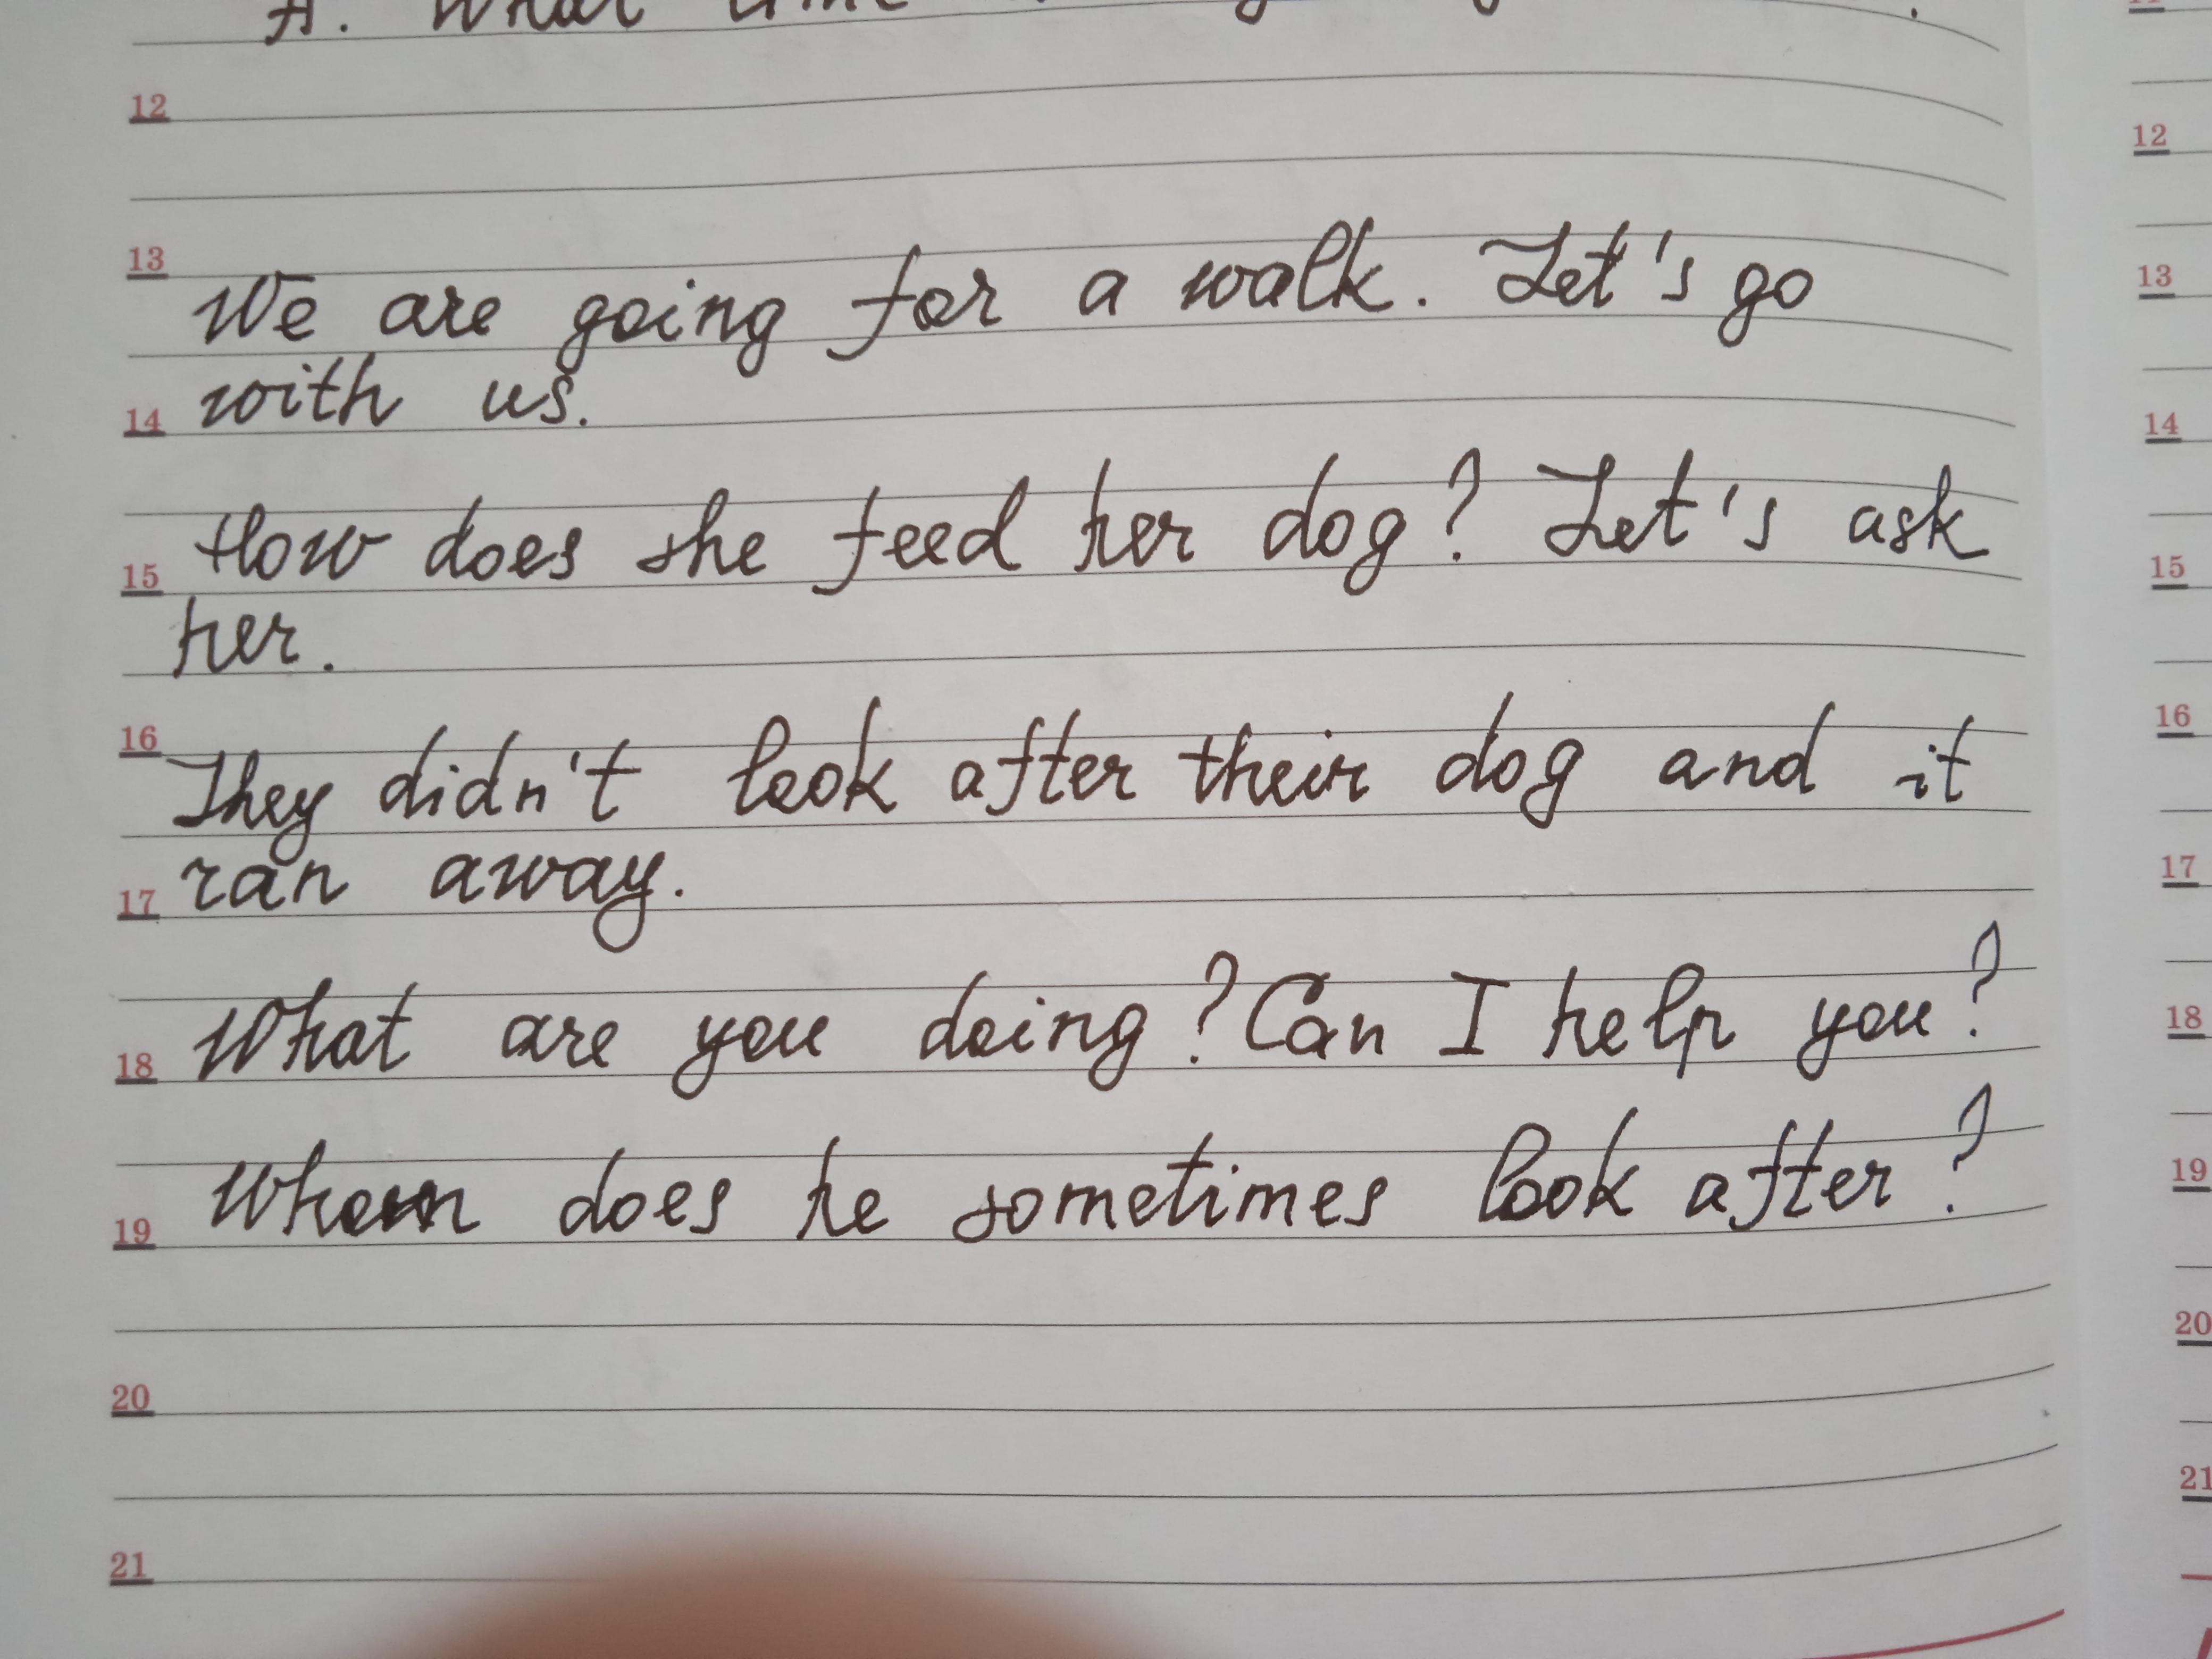 A. What time
12
13
We are going for a walk. Let's go
14 with us.
15 How does she feed her dog? Let's ask
her.
16
They didn't look after their dog and it
17 ran away.
18 What are you doing? Can I help you?
19 Whom does he sometimes look after?
20
21
11
12
13
14
15
16
17
18
19
20
21